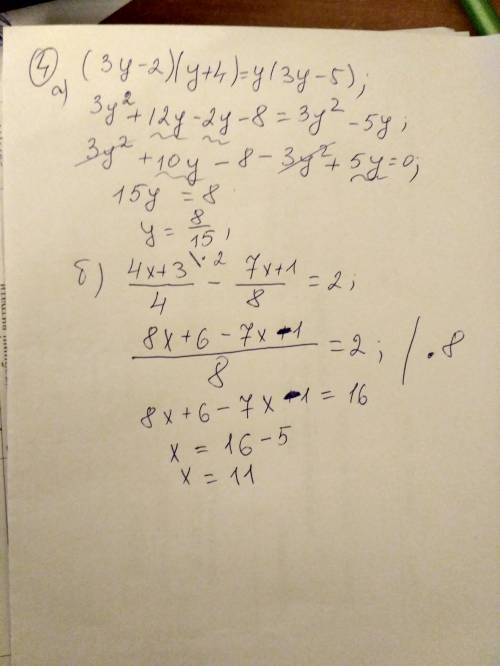 ④ (3y-2)(y+4)=y(3y-5);
а)
3y²+12y-2y-8=3y²-5y;
3y²+10y-8-3y²+5y=0;
15y=8
y=8/15;
б) (4x+3)/4 \·2 - (7x+1)/8 = 2;
(8x+6-7x-1)/8 = 2; /·8
8x+6-7x-1=16
x=16-5
x=11